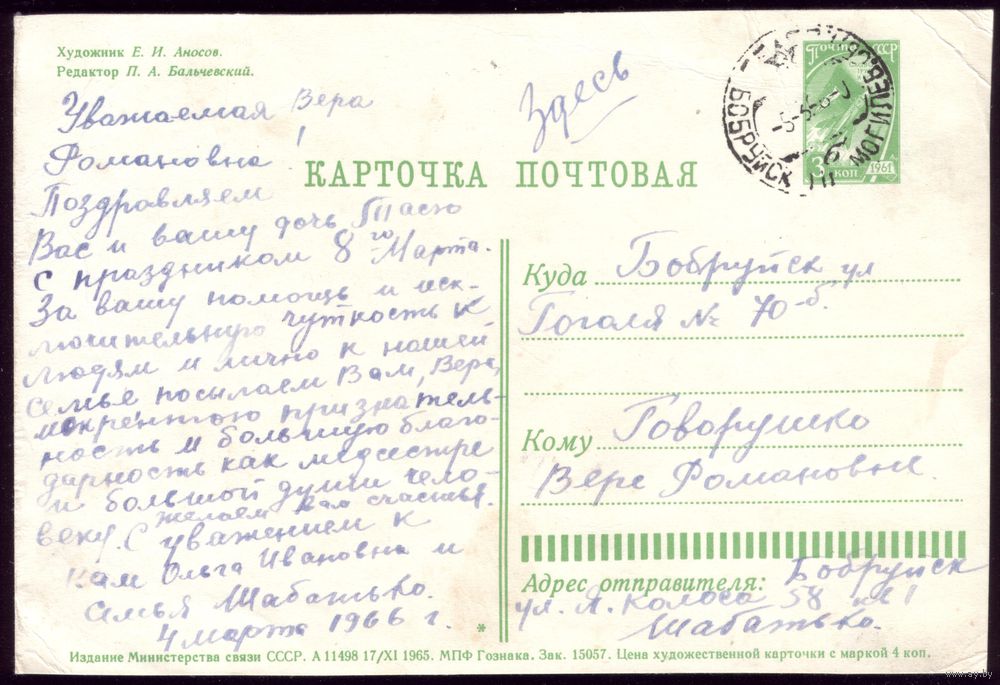 Художник Е. И. Аносов.
Редактор П. А. Бальчевский.
Уважаемая Вера
Романовна!
Поздравляем
Вас и вашу дочь Тасю
с праздником 8го Марта.
За вашу помощь и иск-
лючительную чуткость к
людям и лично к нашей
семье посылаем Вам, Вера,
искреннюю признатель-
ность и большую благо-
дарность как медсестре
и большой души чело-
веку. Желаем вам счастья.
С уважением к
вам Ольга Ивановна и
семья Шабатько.
4 марта 1966 г.
Здесь
ПОЧТА СССР
3 КОП
1961
БОБРУЙСК
МОГИЛЕВСК
КАРТОЧКА ПОЧТОВАЯ
Куда Бобруйск ул
Гоголя № 70-б.
Кому Говорушко
Вере Романовне
Адрес отправителя: Бобруйск
ул. Я. Колоса 58 кв 1
Шабатько.
*
Издание Министерства связи СССР. А 11498 17/XI 1965. МПФ Гознака. Зак. 15057. Цена художественной карточки с маркой 4 коп.
www.ay.by